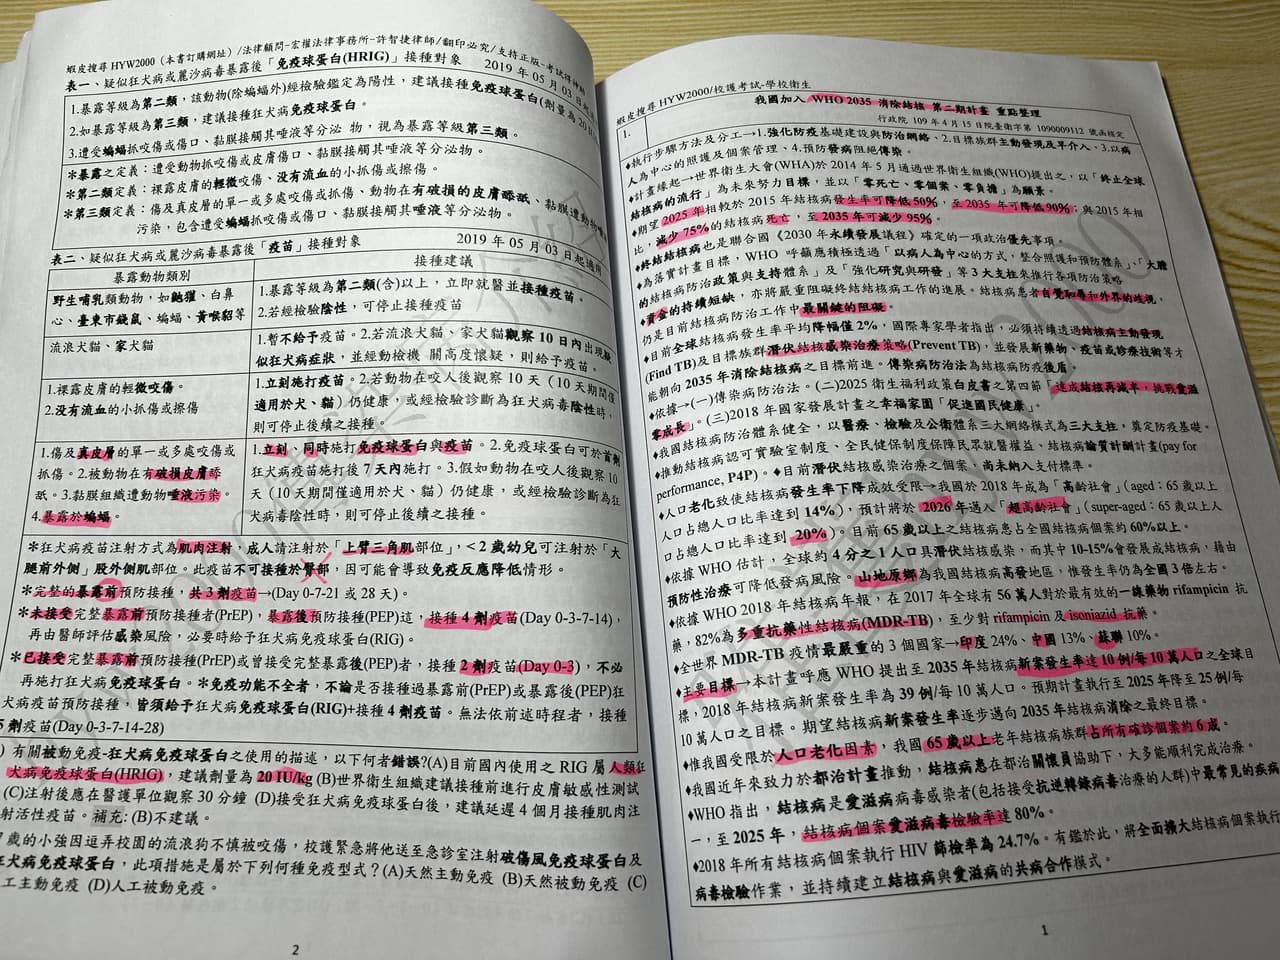 蝦皮搜尋 HYW2000（本書訂購網址）/法律顧問-宏權法律事務所-許智捷律師/翻印必究/支持正版-考試得神助
表一、疑似狂犬病或麗沙病毒暴露後「免疫球蛋白(HRIG)」接種對象 2019 年 05 月 03
1.暴露等級為第二類，該動物(除蝙蝠外)經檢驗鑑定為陽性，建議接種免疫球蛋白(劑量為 20
2.如暴露等級為第三類，建議接種狂犬病免疫球蛋白。
3.遭受蝙蝠抓咬傷或傷口、黏膜接觸其唾液等分泌 物，視為暴露等級第三類。
*暴露之定義：遭受動物抓咬傷或皮膚傷口、黏膜接觸其唾液等分泌物。
*第二類定義：裸露皮膚的輕微咬傷、沒有流血的小抓傷或擦傷。
*第三類定義：傷及真皮層的單一或多處咬傷或抓傷、動物在有破損的皮膚舔舐、黏膜遭動物
污染，包含遭受蝙蝠抓咬傷或傷口、黏膜接觸其唾液等分泌物。
表二、疑似狂犬病或麗沙病毒暴露後「疫苗」接種對象 2019 年 05 月 03 日起適用
暴露動物類別 接種建議
野生哺乳類動物，如鼬獾、白鼻心、臺東市錢鼠、蝙蝠、黃喉貂等
1.暴露等級為第二類(含)以上，立即就醫並接種疫苗。
2.若經檢驗陰性，可停止接種疫苗。
流浪犬貓、家犬貓
1.暫不給予疫苗。2.若流浪犬貓、家犬貓觀察 10 日內出現疑
似狂犬病症狀，並經動檢機 關高度懷疑，則給予疫苗。
1.裸露皮膚的輕微咬傷。
2.沒有流血的小抓傷或擦傷
1.立刻施打疫苗。2.若動物在咬人後觀察 10 天（10 天期間僅
適用於犬、貓）仍健康，或經檢驗診斷為狂犬病毒陰性時，
則可停止後續之接種。
1.傷及真皮層的單一或多處咬傷或
抓傷。2.被動物在有破損皮膚舔
舐。3.黏膜組織遭動物唾液污染。
4.暴露於蝙蝠。
1.立刻、同時施打免疫球蛋白與疫苗。2.免疫球蛋白可於首劑
狂犬病疫苗施打後 7 天內施打。3.假如動物在咬人後觀察 10
天（10 天期間僅適用於犬、貓）仍健康，或經檢驗診斷為狂
犬病毒陰性時，則可停止後續之接種。
*狂犬病疫苗注射方式為肌肉注射，成人請注射於「上臂三角肌部位」，<2 歲幼兒可注射於「大
腿前外側」股外側肌部位。此疫苗不可接種於臀部，因可能會導致免疫反應降低情形。
*完整的暴露前預防接種，共 3 劑疫苗→(Day 0-7-21 或 28 天)。
*未接受完整暴露前預防接種者(PrEP)，暴露後預防接種(PEP)這，接種 4 劑疫苗(Day 0-3-7-14)，
再由醫師評估感染風險，必要時給予狂犬病免疫球蛋白(RIG)。
*已接受完整暴露前預防接種(PrEP)或曾接受完整暴露後(PEP)者，接種 2 劑疫苗(Day 0-3)，不必
再施打狂犬病免疫球蛋白。*免疫功能不全者，不論是否接種過暴露前(PrEP)或暴露後(PEP)狂
犬病疫苗預防接種，皆須給予狂犬病免疫球蛋白(RIG)+接種 4 劑疫苗。無法依前述時程者，接種
5 劑疫苗(Day 0-3-7-14-28)
) 有關被動免疫-狂犬病免疫球蛋白之使用的描述，以下何者錯誤?(A)目前國內使用之 RIG 屬人類狂
犬病免疫球蛋白(HRIG)，建議劑量為 20 IU/kg (B)世界衛生組織建議接種前進行皮膚敏感性測試
(C)注射後應在醫護單位觀察 30 分鐘 (D)接受狂犬病免疫球蛋白後，建議延遲 4 個月接種肌肉注
射活性疫苗。補充: (B)不建議。
歲的小強因逗弄校園的流浪狗不慎被咬傷，校護緊急將他送至急診室注射破傷風免疫球蛋白及
犬病免疫球蛋白，此項措施是屬於下列何種免疫型式？(A)天然主動免疫 (B)天然被動免疫 (C)
工主動免疫 (D)人工被動免疫。
2
蝦皮搜尋 HYW2000/校護考試-學校衛生
我國加入 WHO 2035 消除結核 第二期計畫 重點整理
行政院 109 年 4 月 15 日院臺衛字第 1090009112 號函核定
1.
♦執行步驟方法及分工→1.強化防疫基礎建設與防治網絡、2.目標族群主動發現及早介入、3.以病
人為中心的照護及個案管理、4.預防發病阻絕傳染。
♦計畫緣起→世界衛生大會(WHA)於 2014 年 5 月通過世界衛生組織(WHO)提出之，以「終止全球
結核病的流行」為未來努力目標，並以「零死亡、零個案、零負擔」為願景。
♦期望 2025 年相較於 2015 年結核病發生率可降低 50%，至 2035 年可降低 90%；與 2015 年相
比，減少 75%的結核病死亡，至 2035 年可減少 95%。
♦終結結核病也是聯合國《2030 年永續發展議程》確定的一項政治優先事項。
♦為落實計畫目標，WHO 呼籲應積極透過「以病人為中心的方式，整合照護和預防體系」、「大膽
的結核病防治政策與支持體系」及「強化研究與研發」等 3 大支柱來推行各項防治策略
♦資金的持續短缺，亦將嚴重阻礙終結結核病工作的進展。結核病患者自覺恥辱和外界的歧視，
仍是目前結核病防治工作中最關鍵的阻礙。
♦目前全球結核病發生率平均降幅僅 2%，國際專家學者指出，必須持續透過結核病主動發現
(Find TB)及目標族群潛伏結核感染治療策略(Prevent TB)，並發展新藥物、疫苗或診療技術等才
能朝向 2035 年消除結核病之目標前進。傳染病防治法為結核病防疫後盾。
♦依據→(一)傳染病防治法。(二)2025 衛生福利政策白皮書之第四節「達成結核再減半，挑戰愛滋
零成長」。(三)2018 年國家發展計畫之幸福家園「促進國民健康」。
♦我國結核病防治體系健全，以醫療、檢驗及公衛體系三大網絡模式為三大支柱，奠定防疫基礎。
♦推動結核病認可實驗室制度、全民健保制度保障民眾就醫權益、結核病論質計酬計畫(pay for
performance, P4P)。♦目前潛伏結核感染治療之個案，尚未納入支付標準。
♦人口老化致使結核病發生率下降成效受限→我國於 2018 年成為「高齡社會」(aged：65 歲以上
人口占總人口比率達到 14%)，預計將於 2026 年邁入「超高齡社會」(super-aged：65 歲以上人
口占總人口比率達到 20%)。目前 65 歲以上之結核病患占全國結核病個案約 60%以上。
♦依據 WHO 估計，全球約 4 分之 1 人口具潛伏結核感染，而其中 10-15%會發展成結核病，藉由
預防性治療可降低發病風險。山地原鄉為我國結核病高發地區，惟發生率仍為全國 3 倍左右。
♦依據 WHO 2018 年結核病年報，在 2017 年全球有 56 萬人對於最有效的一線藥物 rifampicin 抗
藥，82%為多重抗藥性結核病(MDR-TB)，至少對 rifampicin 及 isoniazid 抗藥。
♦全世界 MDR-TB 疫情最嚴重的 3 個國家→印度 24%、中國 13%、蘇聯 10%。
♦主要目標→本計畫呼應 WHO 提出至 2035 年結核病新案發生率達 10 例/每 10 萬人口之全球目
標，2018 年結核病新案發生率為 39 例/每 10 萬人口。預期計畫執行至 2025 年降至 25 例/每
10 萬人口之目標。期望結核病新案發生率逐步邁向 2035 年結核病消除之最終目標。
♦惟我國受限於人口老化因素，我國 65 歲以上老年結核病病族群占所有確診個案約 6 成。
♦我國近年來致力於都治計畫推動，結核病患在都治關懷員協助下，大多能順利完成治療。
♦WHO 指出，結核病是愛滋病病毒感染者(包括接受抗逆轉錄病毒治療的人群)中最常見的疾病
一，至 2025 年，結核病個案愛滋病毒檢驗率達 80%。
♦2018 年所有結核病個案執行 HIV 篩檢率為 24.7%。有鑑於此，將全面擴大結核病個案執行
病毒檢驗作業，並持續建立結核病與愛滋病的共病合作模式。
1